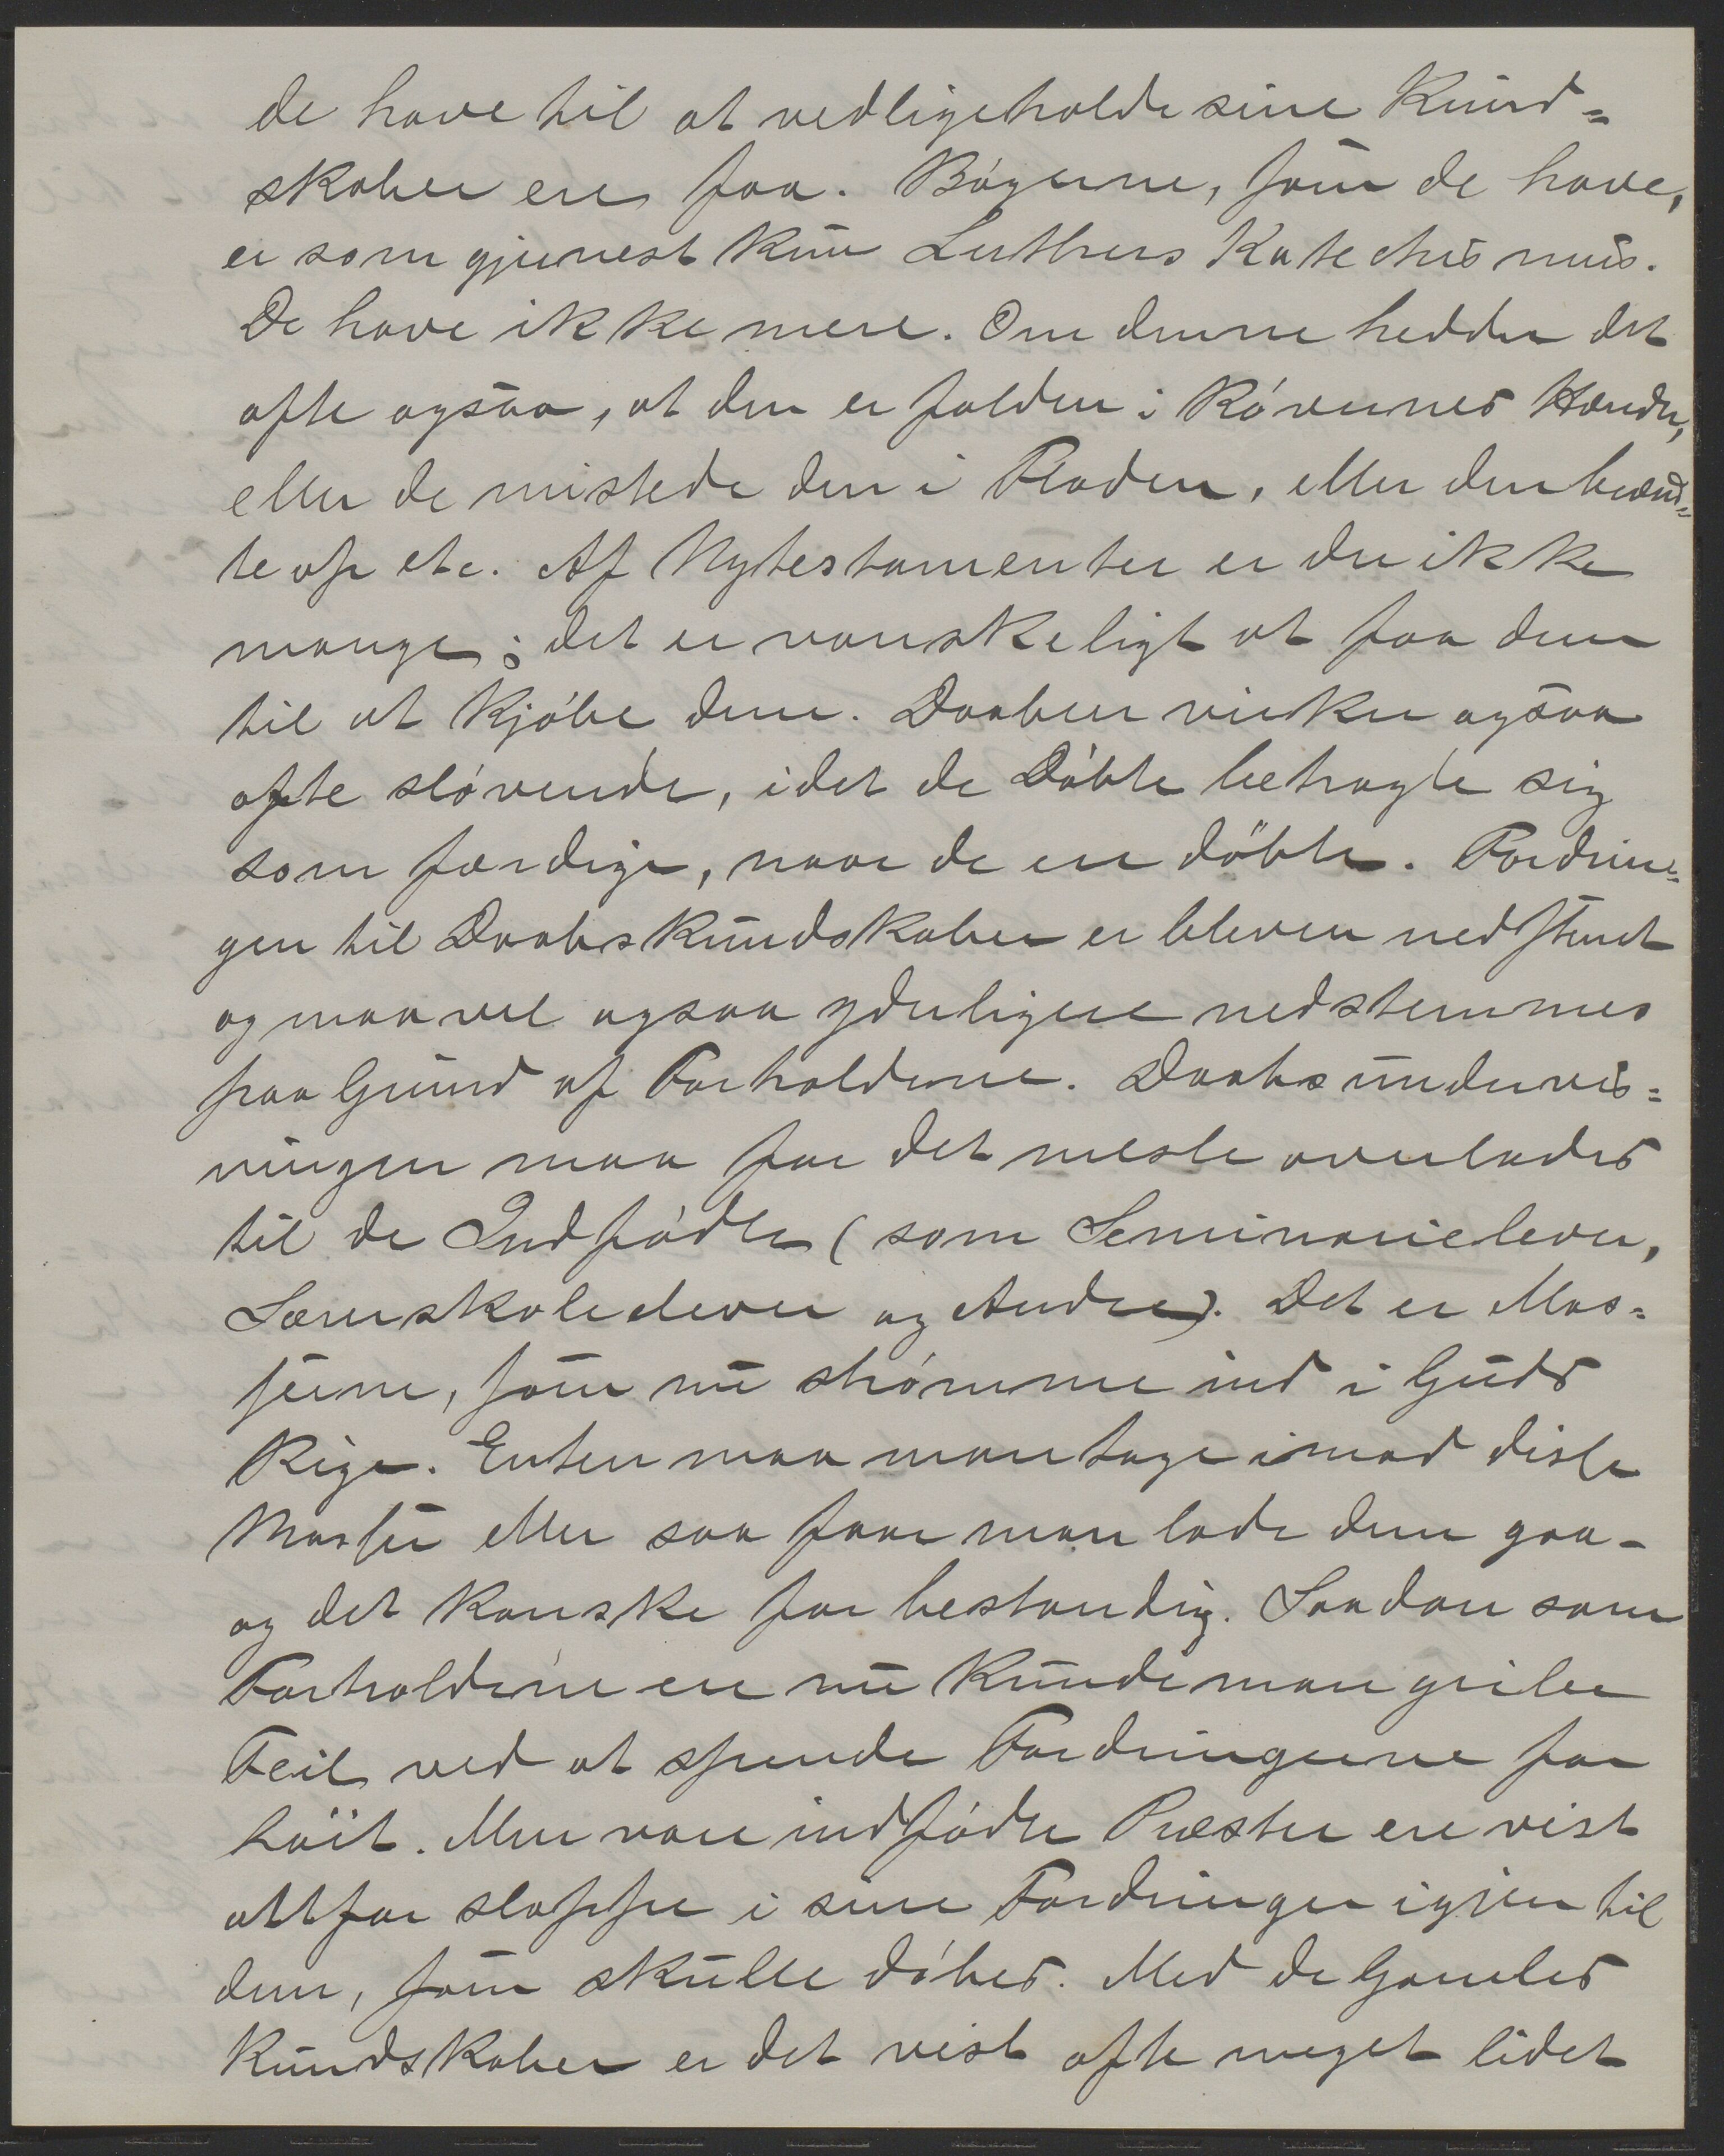 de have til at vedligeholde sine Kund=
skaber ere faa. Bøgerne, som de have,
er som gjernest kun Luthers Katechismus.
De have ikke mere. Om denne hedder det
ofte ogsaa, at den er falden i Røvernes Hænder,
eller de mistede den i Floden, eller den brænd=
te op etc. Af Nytestamenter er der ikke
mange; det er vanskeligt at faa dem
til at kjøbe dem. Daaben virker ogsaa
ofte sløvende, idet de Døbte betragte sig
som færdige, naar de ere døbte. Fordrin=
gen til Daabskundskaber er bleven nedstemt
og maa vel ogsaa yderligere nedstemmes
paa Grund af Forholdene. Daabsundervis=
ningen maa for det meste overlades
til de Indfødte (som Seminarielever,
Lærerskoleelever og Andre). Det er Mas=
serne, som nu strømme ind i Guds
Rige. Enten maa man tage imod disse
Masser eller saa faar man lade dem gaa -
og det kanske for bestandig. Saadan som
Forholdene ere nu kunde man gribe
Feil ved at spende Fordringerne for
høit. Men vare indfødte Præster ere vist
altfor slappe i sine Fordringer igjen til
dem, som skulle døbes. Med de Gamles
Kundskaber er det vist ofte meget lidet